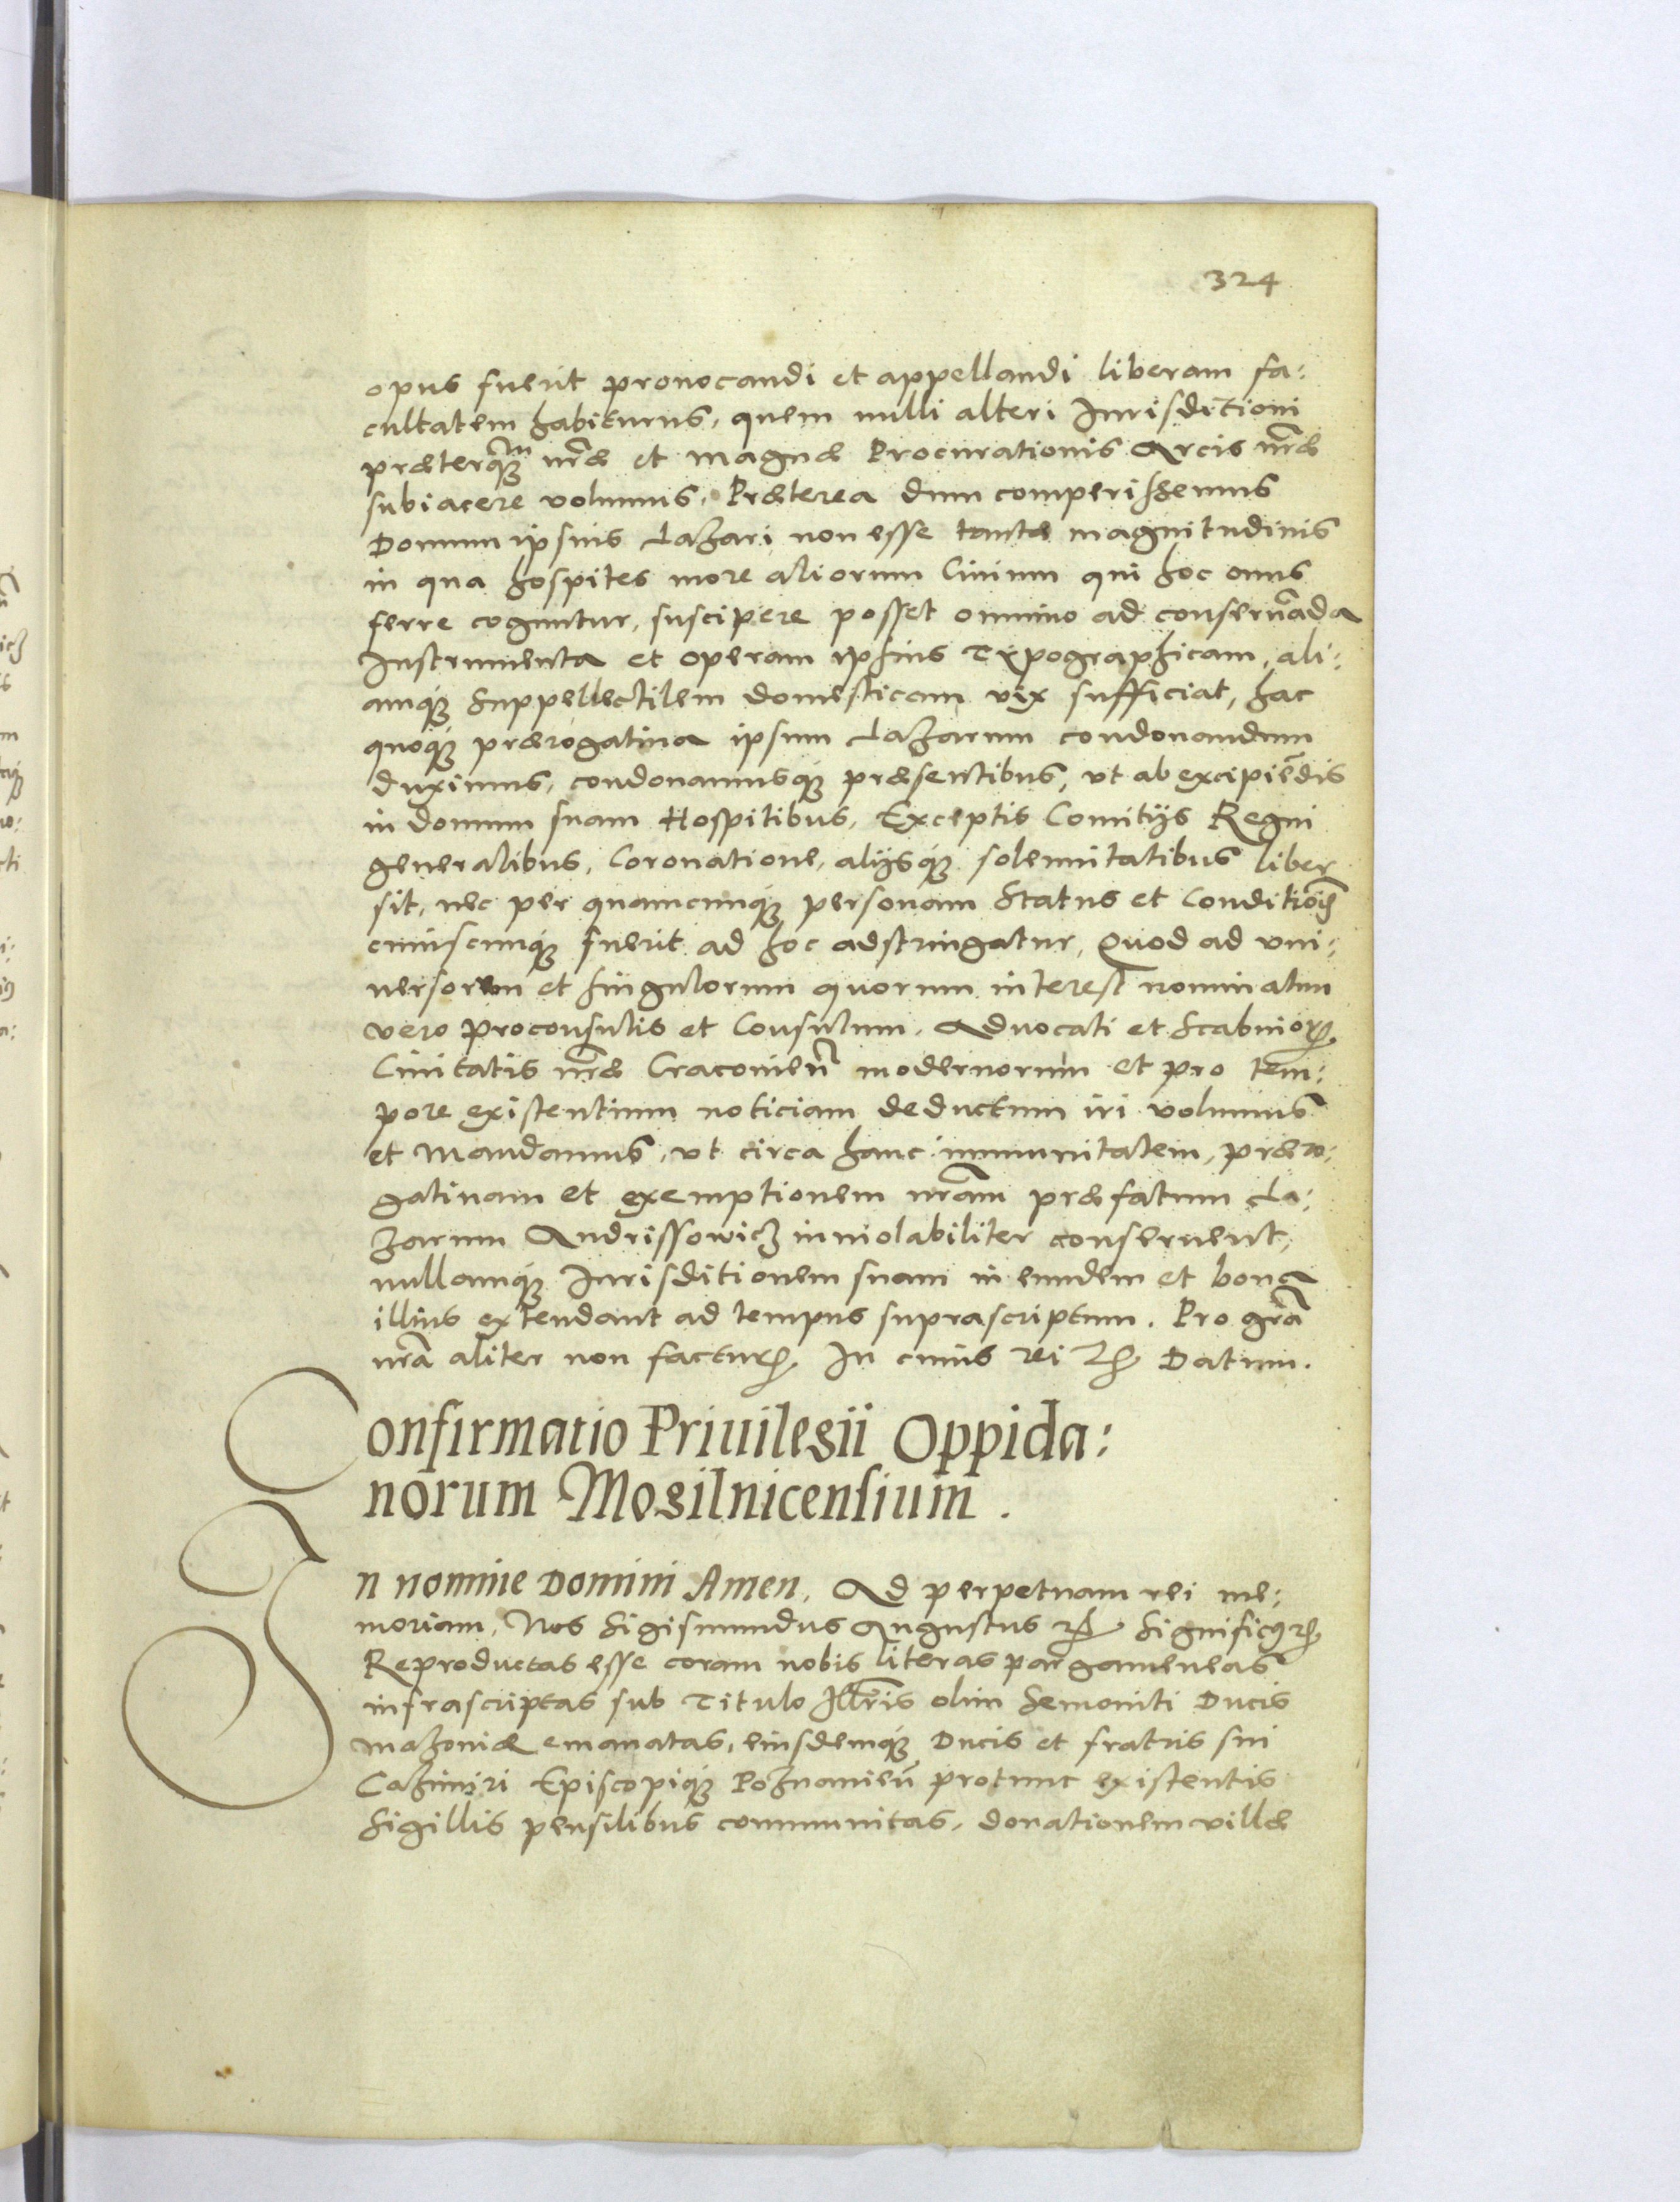 324
opus fuerit prouocandi et appellandi liberam fa:
cultatem habiturus, quem nulli alteri Iurisditioni
præterq̃m nr̃æ et magnæ Procurationis Arcis nr̃æ
subiacere volumus. Præterea dum comperissemus
Domum ipsius Lazari non esse tantæ magnitudinis
in qua hospites more aliorum Ciuium qui hoc onus
ferre coguntur, suscipere posset omnino ad conseruãda
Instrumenta et operam ipsius Typographicam, ali:
amq́; Suppellectilem domesticam vix sufficiat, hac
quoq́; prærogatiua ipsum Lazarum condonandum
duximus, condonamusq́; præsentibus, vt ab excipiẽdis
in domum suam Hospitibus, Exceptis Comitijs Regni
generalibus, Coronatione, alijsq́; solennitatibus liber
sit, nec per quamcunq́; personam Status et Conditiõis
cuiuscunq́; fuerit ad hoc adstringatur, Quod ad vni:
uersorum et singulorum quorum interest nominatim
vero Proconsulis et Consulum, Aduocati et Scabinorꝝ
Ciuitatis nr̃æ Cracouieñ modernorum et pro tem:
pore existentium noticiam deductum iri volumus
et Mandamus, vt circa hanc immunitatem, præro:
gatiuam et exemptionem nr̃am præfatum La:
zarum Andrissowicz inuiolabiliter conseruent,
nullamq́; Iurisditionem suam in eundem et bona
illius extendant ad tempus suprascriptum. Pro gr̃a
nr̃a aliter non facturꝝ. In cuius rei ꝛc̃ Datum.
Confirmatio Priuilegii Oppida:
norum Mogilnicensium.
In nomine Domini Amen. Ad perpetuam rei me:
moriam, Nos Sigismundus Augustus ꝛc̃ Significꝯ ꝛc̃
Reproductas esse coram nobis literas pargameneas
infrascriptas sub Titulo Illr̃is olim Semouiti Ducis
Mazouiæ emanatas, eiusdemq́; Ducis et fratris sui
Cazimiri Episcopiq́; Poznanieñ protunc existentis
Sigillis pensilibus communitas, donationem villæ